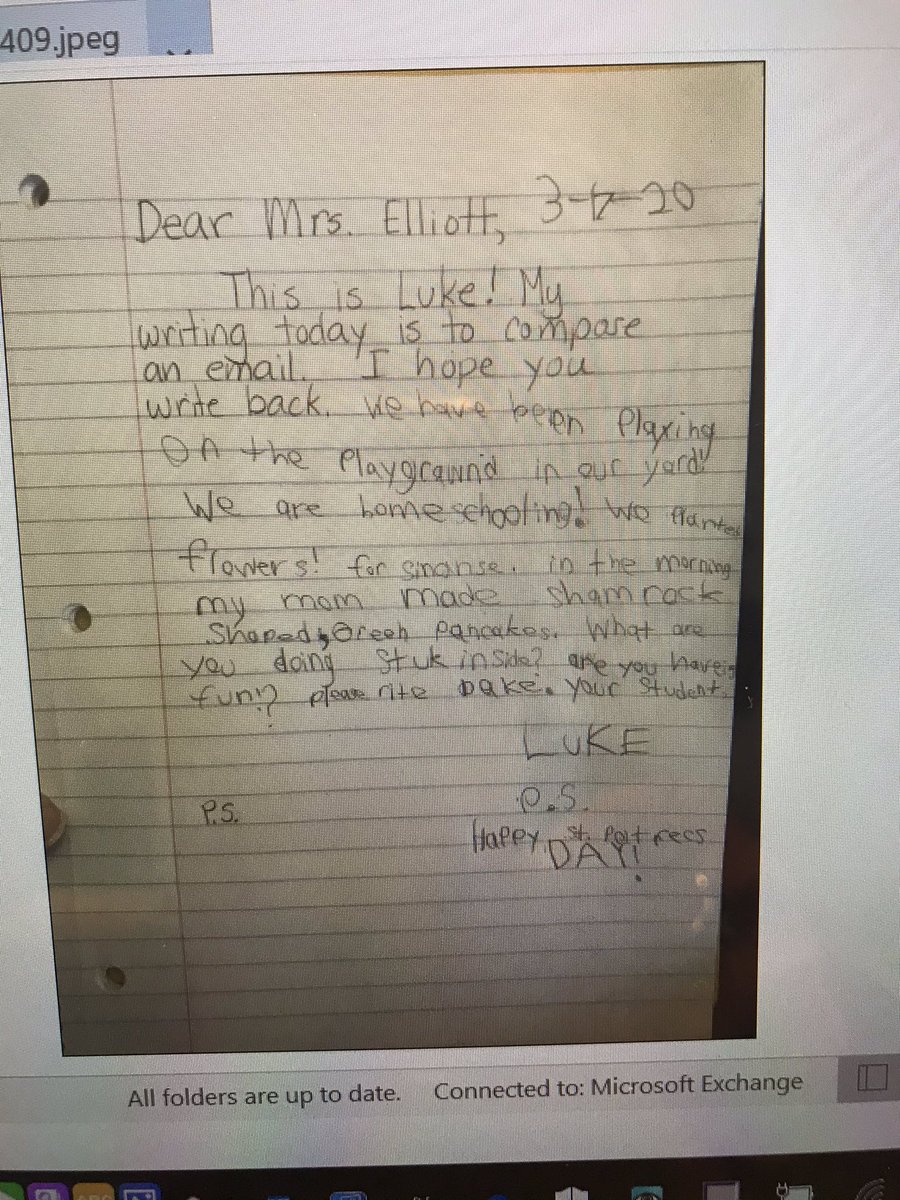 409.jpeg
Dear Mrs. Elliott, 3-17-20
This is Luke! My
writing today is to compose
an email. I hope you
write back. We have been Playing
on the Playgrawnd in our yard!
We are homeschooling! We Planted
flowers! for sinanse. in the morning
my mom made shamrock
Shaped, Green Pancakes. What are
you doing stuk inside? are you haveig
fun!? please rite bake. your Student.
LUKE
P.S. P.S.
Happy St. Patrecs
DAY!
All folders are up to date. Connected to: Microsoft Exchange